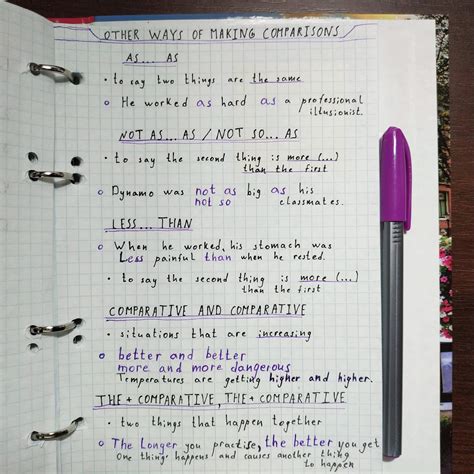 OTHER WAYS OF MAKING COMPARISONS
AS... AS
• to say two things are the same
He worked as hard as a professional
illusionist.
NOT AS... AS / NOT SO... AS
• to say the second thing is more (...)
than the first
Dynamo was not as big as his
not so classmates.
LESS... THAN
When he worked, his stomach was
Less painful than when he rested.
• to say the second thing is more (...)
than the first
COMPARATIVE AND COMPARATIVE
• situations that are increasing
better and better
more and more dangerous
Temperatures are getting higher and higher.
THE + COMPARATIVE, THE + COMPARATIVE
• two things that happen together
The Longer you practise, the better you get
One thing happens and causes another thing
to happen